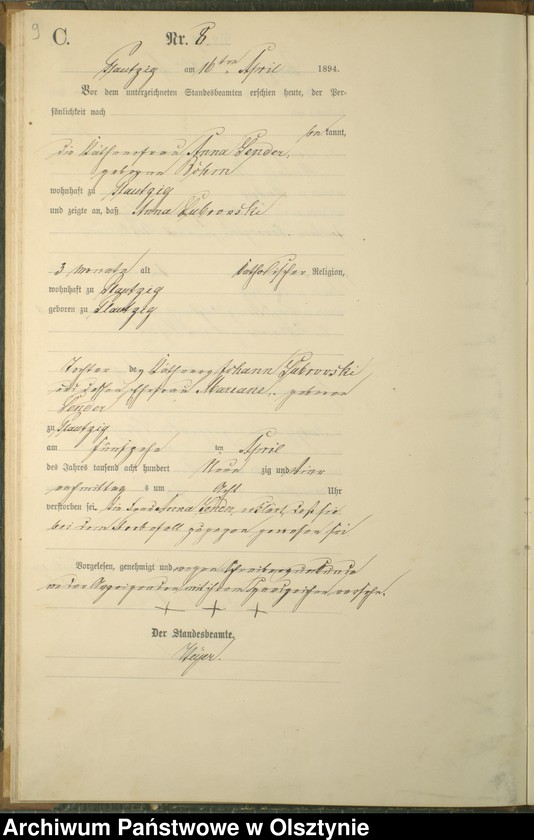 9
C. Nr. 8.
Plautzig am 16ten April 1894.
Vor dem unterzeichneten Standesbeamten erschien heute, der Per-
sönlichkeit nach
bekannt,
die Käthnerfrau Anna Sender,
geborene Böhm
wohnhaft zu Plautzig
und zeigte an, daß Anna Dubrovski
3 Monate alt katholischer Religion,
wohnhaft zu Plautzig
geboren zu Plautzig
Tochter des Käthners Johann Dubrovski
und dessen Ehefrau Mariane, geborene
Sender
zu Plautzig
am fünfzehn ten April
des Jahres tausend acht hundert Neun zig und vier
nachmittags um Acht Uhr
verstorben sei. Die Frau Anna Sender, erklärt, daß sie
bei dem Sterbefall zugegen gewesen sei
Vorgelesen, genehmigt und wegen Schreibensunkunde
von der Anzeigenden mit ihrem Handzeichen versehen.
+ + +
Der Standesbeamte.
Archiwum Państwowe w Olsztynie